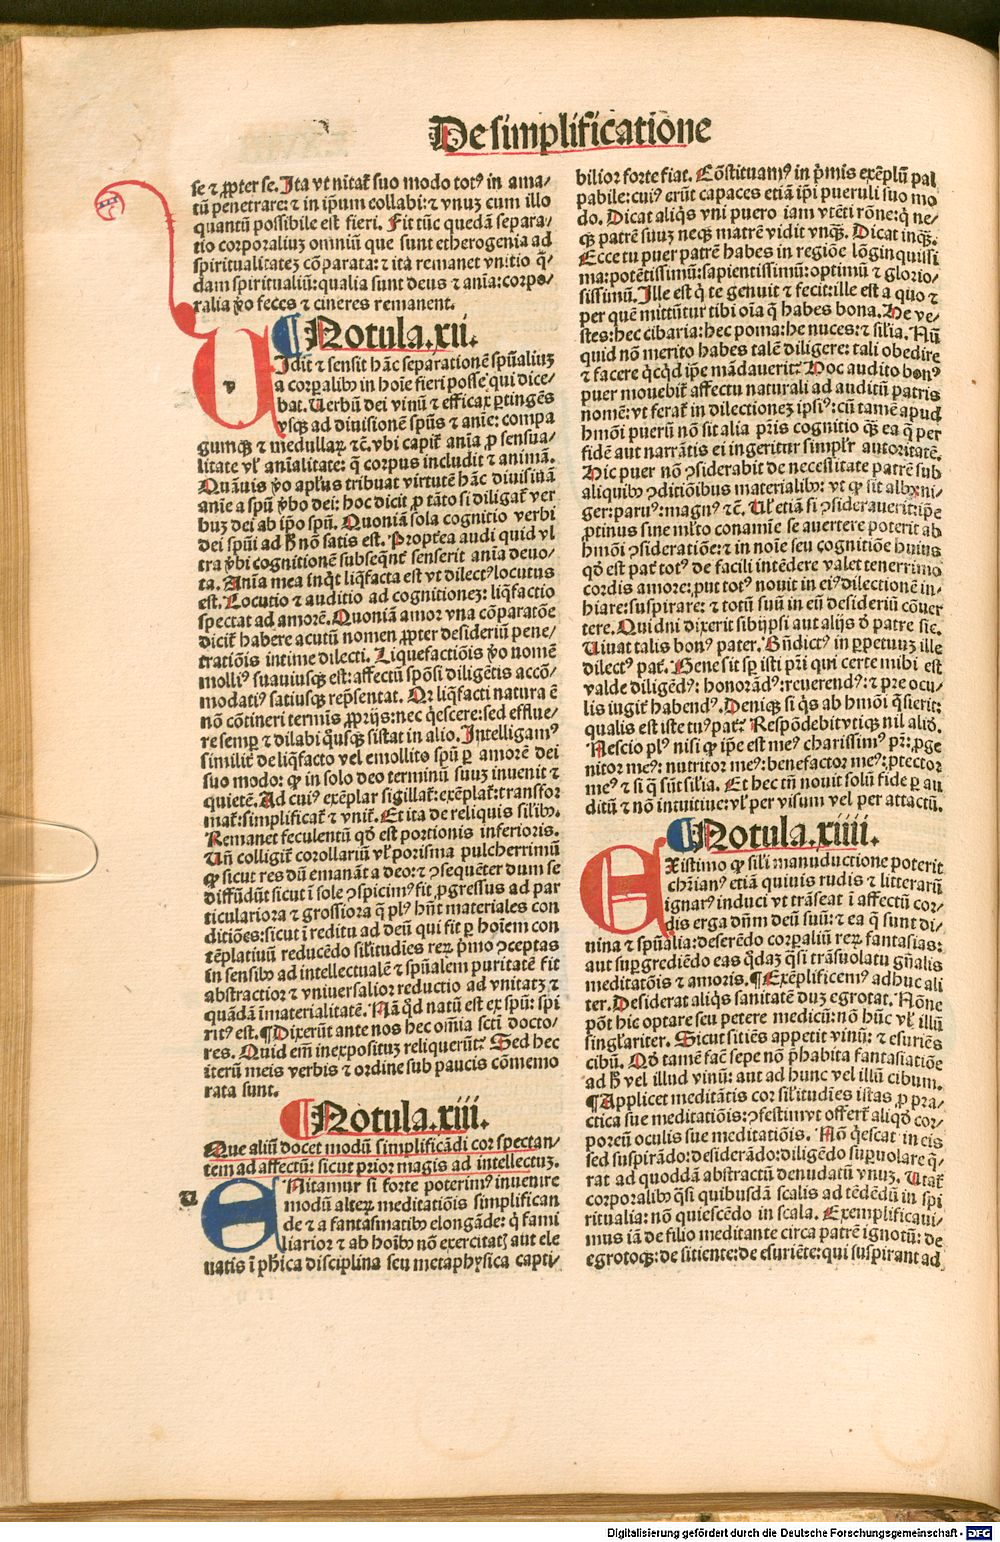 De simplificatione
se ⁊ ꝓpter se. Ita vt nitat᷑ suo modo totꝰ in ama-
tū penetrare: ⁊ in ip̄um collabi: ⁊ vnuꝫ cum illo
quantū possibile est fieri. Fit tūc quedā separa-
tio corporaliuꝫ omniū que sunt etherogenia ad
spiritualitateꝫ cōparata: ⁊ ita remanet vnitio q̄-
dam spiritualiū: qualia sunt deus ⁊ aīa: corpo-
ralia ꝟo feces ⁊ cineres remanent.
¶ Notula.xij.
Vidit ⁊ sensit hāc separationē spūaliuꝫ
a corꝑalibꝰ in hoīe fieri posse qui dice-
bat. Uerbū dei vinū ⁊ efficax ꝑtingēs
vsqꝫ ad diuisionē spūs ⁊ anīe: compa
gumqꝫ ⁊ medullaꝝ ⁊c̄. vbi capit᷑ anīa ꝓ sensua-
litate vl̓ anīalitate: q̄ corpus includit ⁊ animā.
Quāuis ꝟo apl̓us tribuat virtutē hāc diuisiuā
anīe a spū ꝟbo dei: hoc dicit ꝓ tāto si diligat᷑ ver
buꝫ dei ab ip̄o spū. Quoniā sola cognitio verbi
dei spūi ad h̄ nō satis est. Propt̄ea audi quid vl
tra ꝟbi cognitionē subseqn̄t᷑ senserit anīa deuo-
ta. Anīa mea inq̇t liq̄facta est vt dilectꝰ locutus
est. Locutio ⁊ auditio ad cognitioneꝫ: liq̄factio
spectat ad amorē. Quoniā amor vna cōparatōe
dicit᷑ habere acutū nomen ꝓpter desideriū pene-
tratiōis intime dilecti. Liquefactiōis ꝟo nomē
mollīꝰ suauiusqꝫ est: affectū spōsi diligētis accō-
modatīꝰ satiusqꝫ rep̄sentat. Qr̄ liq̄facti natura ē
nō cōtineri termīs ꝓprijs: nec q̇escere: sed efflue-
re semꝑ ⁊ dilabi q̊usqꝫ sistat in alio. Intelligamꝰ
similit᷑ de liq̄facto vel emollito spū ꝑ amorē dei
suo modo: qꝙ in solo deo terminū suuꝫ inuenit ⁊
quietē. Ad cuiꝰ exēplar sigillat᷑: exēplat᷑: transfor
mat᷑: simplificat᷑ ⁊ vnit᷑. Et ita de reliquis sil̓ibꝰ.
Remanet feculentū qd̓ est portionis inferioris.
Uñ colligit᷑ corollariū vl̓ porisma pulcherrimū
ꝙ sicut res dū emanāt a deo: ⁊ ꝯsequēter dum se
diffūdūt sicut ī sole ꝯspicimꝰ fit ꝓgressus ad par
ticulariora ⁊ grossiora q̄ plꝰ hn̄t materiales con
ditiōes: sicut ī reditu ad deū qui fit ꝑ hoīem con
tēplatiuū reducēdo sil̓itudīes reꝝ p̄mo ꝯceptas
in sensibꝰ ad intellectualē ⁊ spūalem puritatē fit
abstractior ⁊ vniuersalior reductio ad vnitatꝫ ⁊
quādā īmaterialitatē. Nā q̊d natū est ex spū: spi
ritꝰ est. ¶ Dixerūt ante nos hec om̄ia sctī docto-
res. Quid em̄ inexpositum reliquerūt? Sed hec
iterū meis verbis ⁊ ordine sub paucis cōmemo
rata sunt.
¶ Notula.xiij.
Que aliū docet modū simplificādi cor spectan-
tem ad affectū: sicut prior magis ad intellectuꝫ.
U
ENitamur si forte poterimꝰ inuenire
modū alteꝝ meditatiōis simplifican
de ⁊ a fantasmatibꝰ elongāde: q̇ fami
liarior ⁊ ab hoībꝰ nō exercitatꝭ aut ele
uatis ī pħica disciplina seu metaphysica capti-
bilior forte fiat. Cōstituamꝰ in p̄mis exēplū pal
pabile: cuiꝰ erūt capaces etiā ip̄i pueruli suo mo
do. Dicat aliq̇s vni puero iam vtēti rōne: q̇ ne-
qꝫ patrē suuꝫ neqꝫ matrē vidit vnqꝫ. Dicat inqꝫ.
Ecce tu puer patrē habes in regiōe lōginquissi
ma: potētissimū: sapientissimū: optimū ⁊ glorio-
sissimū. Ille est q̇ te genuit ⁊ fecit: ille est a quo ⁊
per quē mittūtur tibi oīa q̄ habes bona. He ve-
stes: hec cibaria: hec poma: he nuces: ⁊ sil̓ia. Nū
quid nō merito habes talē diligere: tali obedire
⁊ facere q̇cq̇d ip̄e mādauerit? Hoc audito bonꝰ
puer mouebit᷑ affectu naturali ad auditū patris
nomē: vt ferat᷑ in dilectioneꝫ ipsiꝰ: cū tamē apud
hmōi puerū nō sit alia pr̄is cognitio qꝫ ea q̄ per
fidē aut narrātis ei ingeritur simpl̓r autoritatē.
Hic puer nō ꝯsiderabit de necessitate patrē sub
aliquibꝰ ꝯditiōibus materialibꝰ: vt ꝙ sit albꝰ: ni-
ger: paruꝰ: magnꝰ ⁊c̄. Ul̓ etiā si ꝯsiderauerit: ip̄e
ꝓtinus sine ml̓to conamīe se auertere poterit ab
hmōi ꝯsideratiōe: ⁊ in noīe seu cognitiōe huius
qd̓ est pat᷑ totꝰ de facili intēdere valet tenerrimo
cordis amore: put totꝰ nouit in eiꝰ dilectionē in-
hiare: suspirare: ⁊ totū suū in eū desideriū cōuer
tere. Quidni dixerit sibijpsi aut alijs d̓ patre sic.
Uiuat talis bonꝰ pater. Bn̄dictꝰ in ꝑpetuuꝫ ille
dilectꝰ pat᷑. Bene sit sꝑ isti pr̄i qui certe mihi est
valde diligēdꝰ: honorādꝰ: reuerendꝰ: ⁊ pre ocu-
lis iugit᷑ habendꝰ. Deniqꝫ si q̇s ab hmōi q̄sierit:
qualis est iste tuꝰ pat᷑? Respōdebit vtiqꝫ nil aliō.
Nescio plꝰ nisi ꝙ ip̄e est meꝰ charissimꝰ pr̄: ꝓge
nitor meꝰ: nutritor meꝰ: benefactor meꝰ: ꝓtector
meꝰ ⁊ si q̄ sūt sil̓ia. Et hec tn̄ nouit solū fide ꝑ au
ditū ⁊ nō intuitiue: vl̓ per visum vel per attactū.
¶ Notula.xiiij.
EXistimo ꝙ sil̓i manuductione poterit
chr̄ianꝰ etiā quiuis rudis ⁊ litterarū
ignarꝰ induci vt trāseat ī affectū cor-
dis erga dn̄m deū suū: ⁊ ea q̄ sunt di-
uina ⁊ spūalia: deserēdo corꝑaliū reꝝ fantasias:
aut suꝑgrediēdo eas q̇daꝫ q̄si trāsuolatu gn̄alis
meditatōis ⁊ amoris. ¶ Exēplificemꝰ adhuc ali
ter. Desiderat aliq̇s sanitatē duꝫ egrotat. Nōne
pōt hic optare seu petere medicū: nō hūc vl̓ illū
singl̓ariter. Sicut sitiēs appetit vinū: ⁊ esuriēs
cibū. Qd̓ tamē facē sepe nō p̄habita fantasiatiōe
ad h̄ vel illud vinū: aut ad hunc vel illū cibum.
¶ Applicet meditātis cor sil̓itudīes istas ꝓ pra-
ctica sue meditatiōis: ꝯfestimvt offert᷑ aliqd̓ cor-
poreū oculis sue meditatiōis. Nō q̇escat in eis
sed suspirādo: desiderādo: diligēdo suꝑuolare q̄-
rat ad quoddā abstractū denudatū vnuꝫ. Utat᷑
corporalibꝰ q̄si quibusdā scalis ad tēdēdū in spi
ritualia: nō quiescēdo in scala. Exemplificaui-
mus iā de filio meditante circa patrē ignotū: de
egrotoqꝫ: de sitiente: de esuriēte: qui suspirant ad
Digitalisierung gefördert durch die Deutsche Forschungsgemeinschaft - DFG